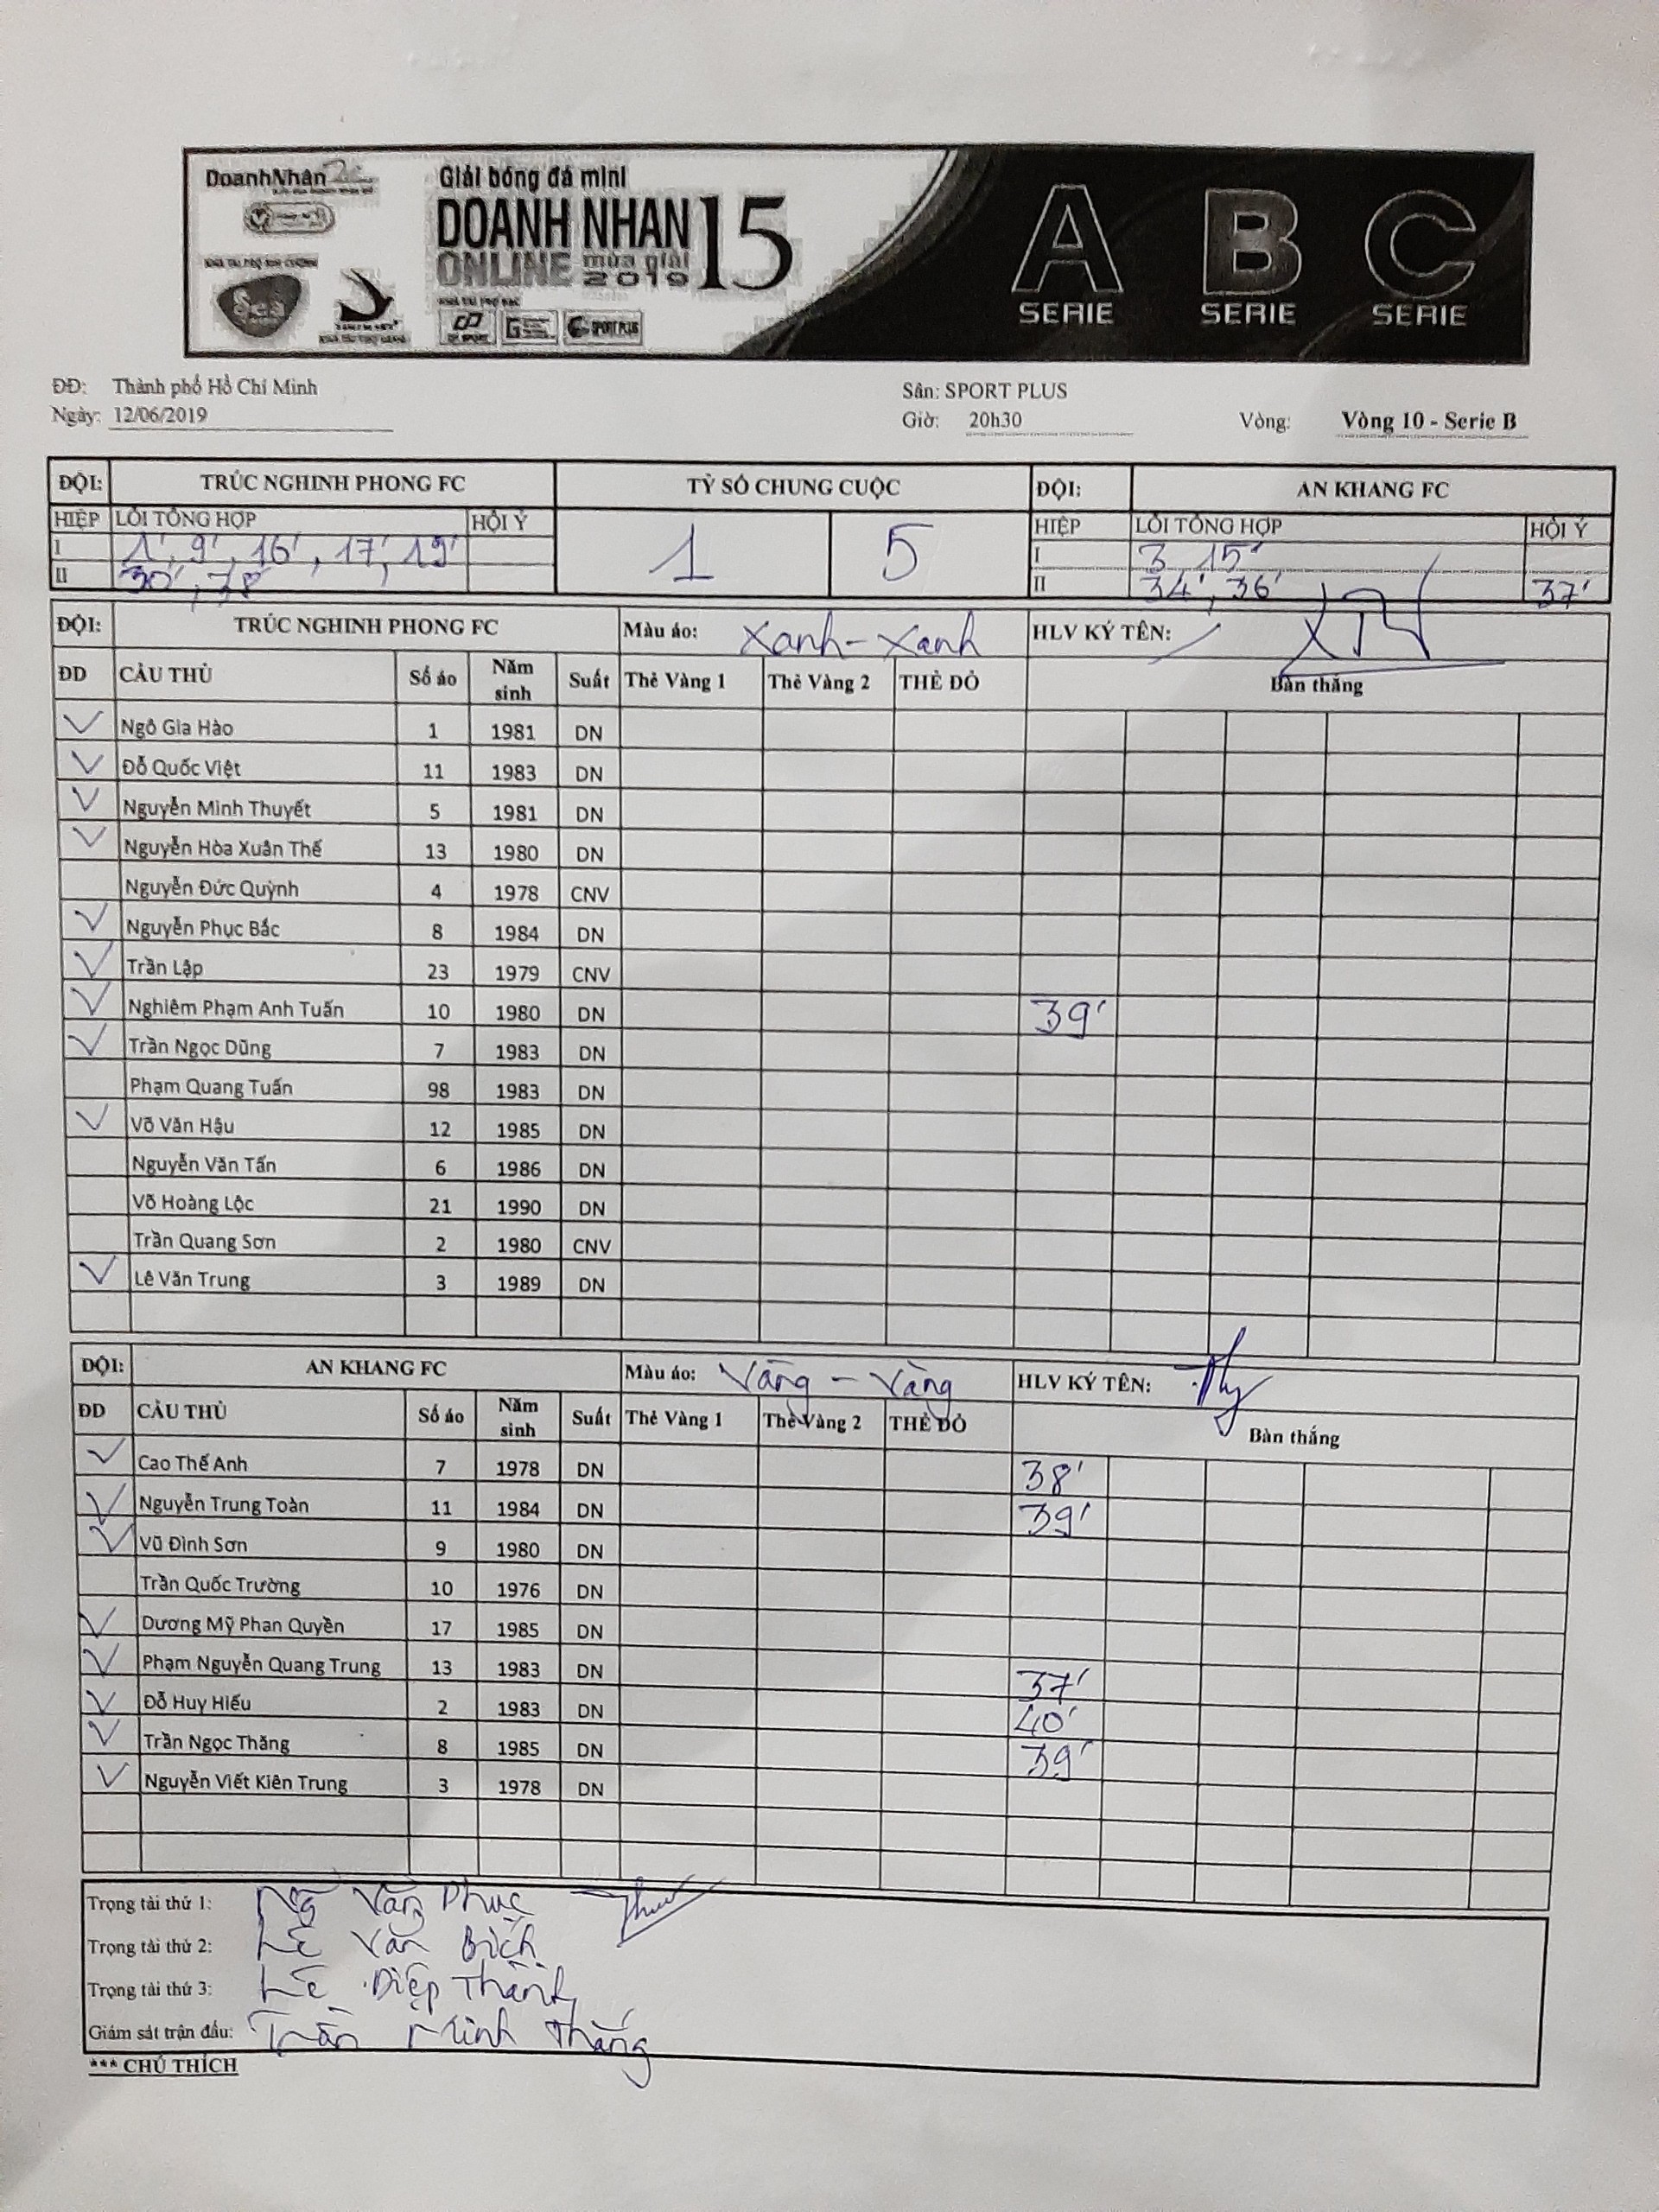 DoanhNhân
Giải bóng đá mini
DOANH NHAN 15
ONLINE mùa giải 2019
SPORT PLUS
A SERIE B SERIE C SERIE
ĐĐ: Thành phố Hồ Chí Minh Sân: SPORT PLUS
Ngày: 12/06/2019 Giờ: 20h30 Vòng: Vòng 10 - Serie B
ĐỘI: TRÚC NGHINH PHONG FC TỶ SỐ CHUNG CUỘC ĐỘI: AN KHANG FC
HIỆP LỖI TỔNG HỢP HỘI Ý 1 5 HIỆP LỖI TỔNG HỢP HỘI Ý
I 1', 9', 16', 17', 19' I 3 15'
II 30', 38' II 34', 36' 37'
ĐỘI: TRÚC NGHINH PHONG FC Màu áo: Xanh - Xanh HLV KÝ TÊN:
ĐD CẦU THỦ Số áo Năm sinh Suất Thẻ Vàng 1 Thẻ Vàng 2 THẺ ĐỎ Bàn thắng
Ngô Gia Hào 1 1981 DN
Đỗ Quốc Việt 11 1983 DN
Nguyễn Minh Thuyết 5 1981 DN
Nguyễn Hòa Xuân Thế 13 1980 DN
Nguyễn Đức Quỳnh 4 1978 CNV
Nguyễn Phục Bắc 8 1984 DN
Trần Lập 23 1979 CNV
Nghiêm Phạm Anh Tuấn 10 1980 DN 39'
Trần Ngọc Dũng 7 1983 DN
Phạm Quang Tuấn 98 1983 DN
Võ Văn Hậu 12 1985 DN
Nguyễn Văn Tấn 6 1986 DN
Võ Hoàng Lộc 21 1990 DN
Trần Quang Sơn 2 1980 CNV
Lê Văn Trung 3 1989 DN
ĐỘI: AN KHANG FC Màu áo: Vàng - Vàng HLV KÝ TÊN:
ĐD CẦU THỦ Số áo Năm sinh Suất Thẻ Vàng 1 Thẻ Vàng 2 THẺ ĐỎ Bàn thắng
Cao Thế Anh 7 1978 DN 38'
Nguyễn Trung Toàn 11 1984 DN 39'
Vũ Đình Sơn 9 1980 DN
Trần Quốc Trường 10 1976 DN
Dương Mỹ Phan Quyền 17 1985 DN
Phạm Nguyễn Quang Trung 13 1983 DN 37'
Đỗ Huy Hiếu 2 1983 DN 40'
Trần Ngọc Thăng 8 1985 DN 39'
Nguyễn Viết Kiên Trung 3 1978 DN
Trọng tài thứ 1: Văn Phúc
Trọng tài thứ 2: Lê Văn Bích
Trọng tài thứ 3: Lê Diệp Thành
Giám sát trận đấu: Trần Minh Thắng
*** CHÚ THÍCH